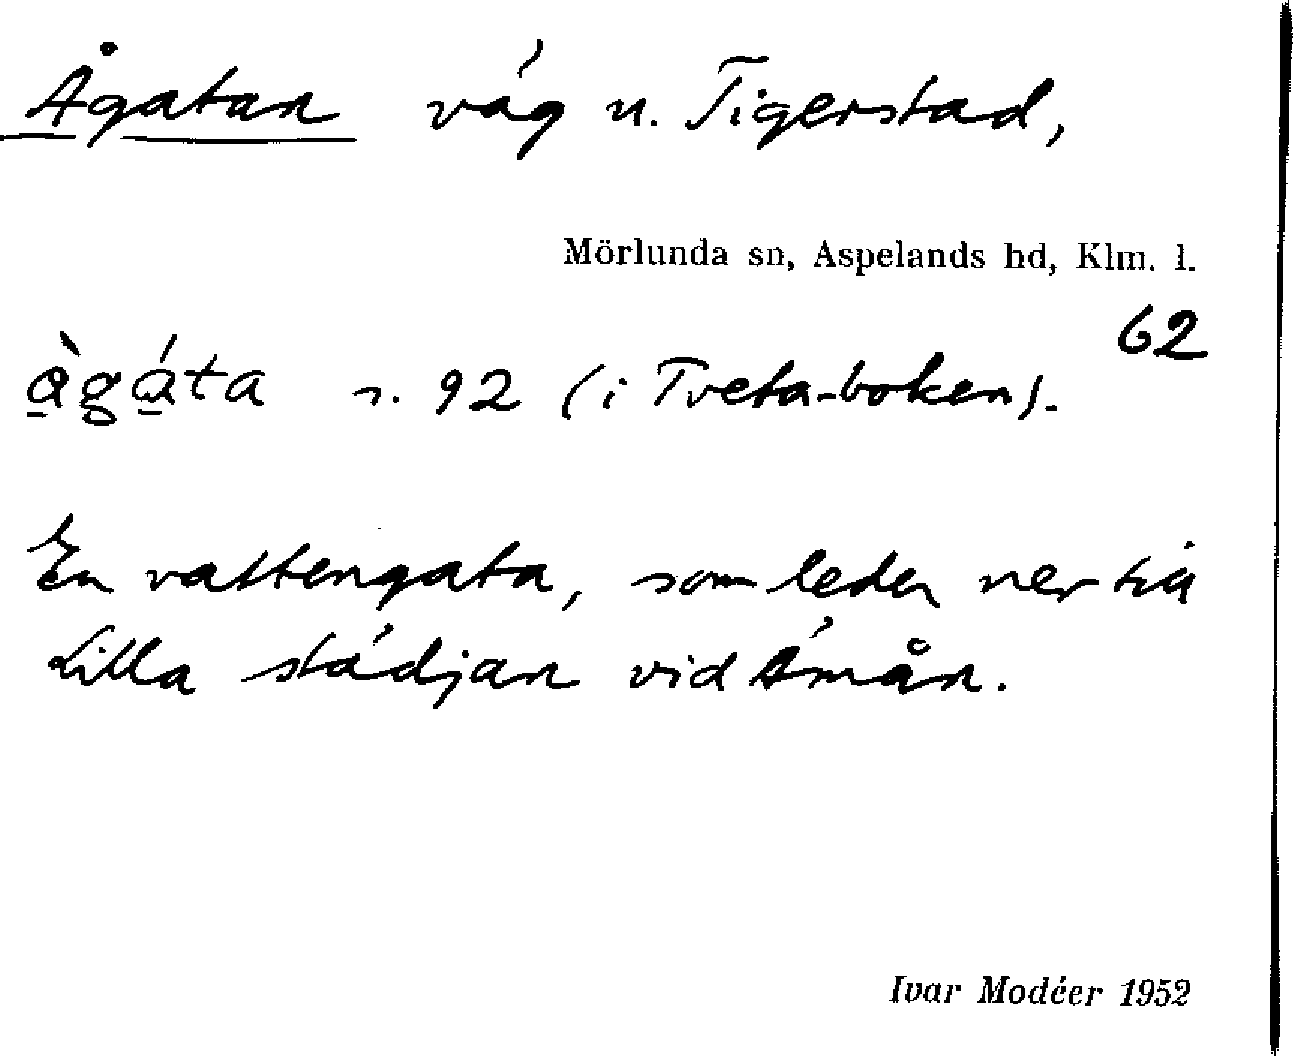 Ågatan väg u. Tigerstad,
Mörlunda sn, Aspelands hd, Klm. l.
62
àgáta s. 92 (i Tveta-boken).
En vattengata, som leder ner till
Lilla städjan vid Åmån.
Ivar Modéer 1952